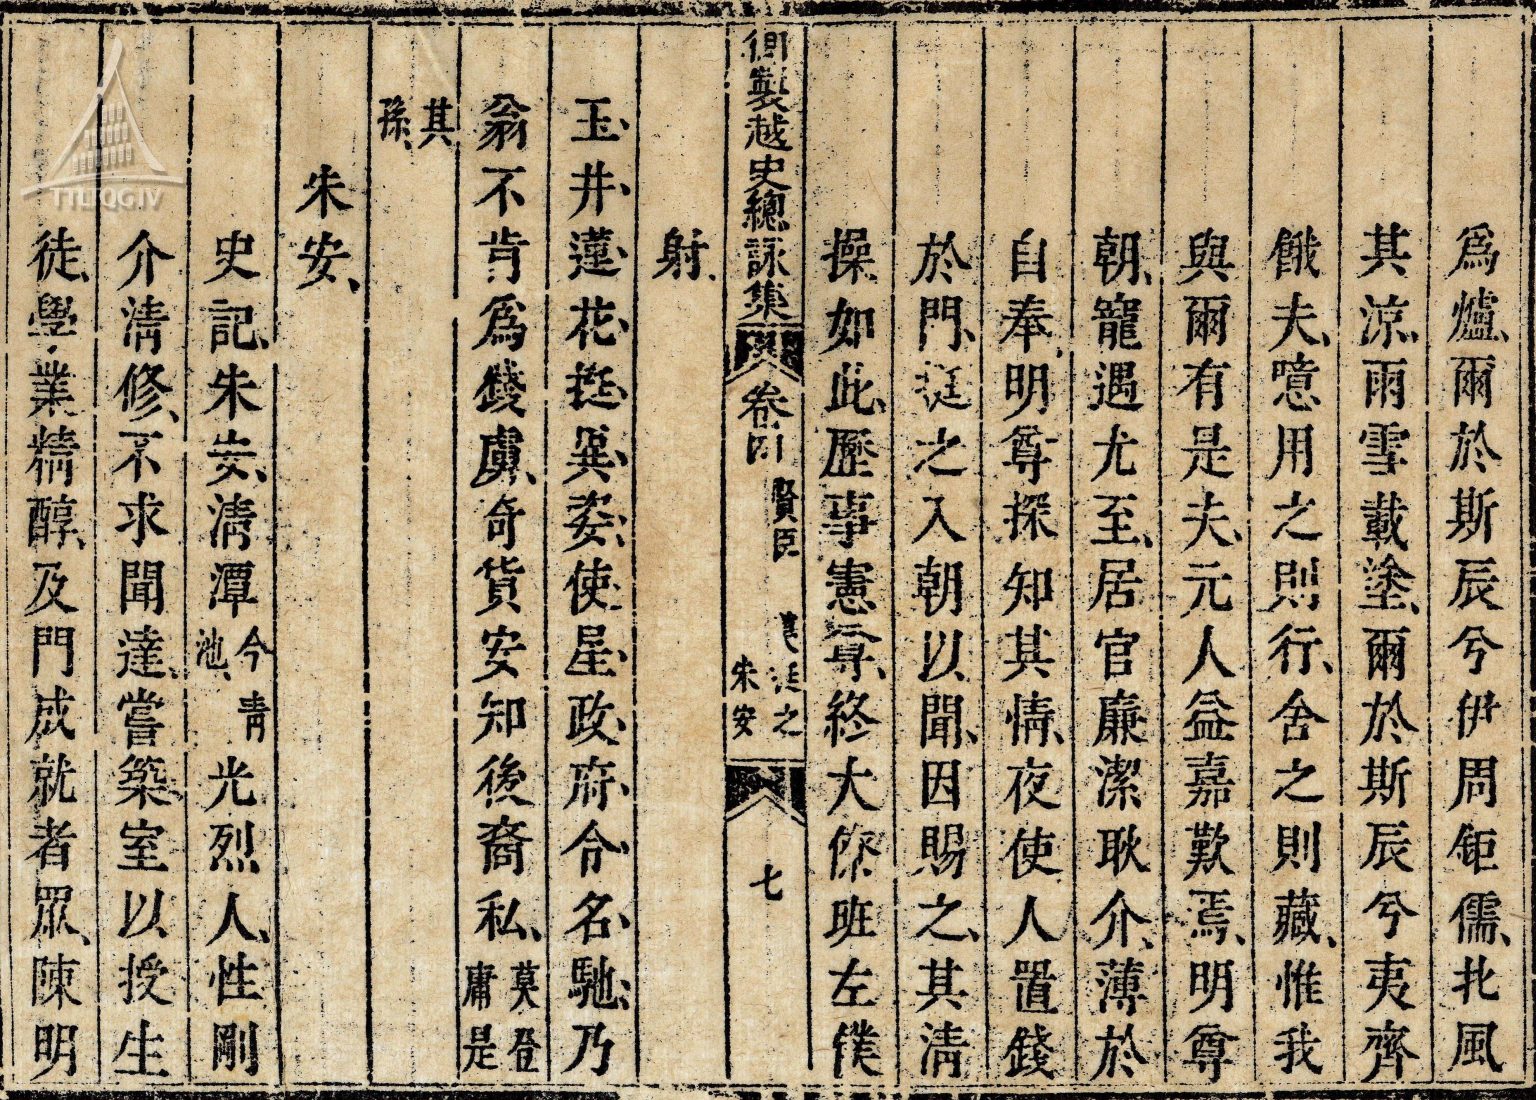 爲爐爾於斯辰兮伊周鉅儒、北風
其涼、雨雪載塗、爾於斯辰兮夷齊
餓夫、噫用之則行、舍之則藏、惟我
與爾有是夫、元人益嘉歎焉、明尊
朝、寵遇尤至、居官廉潔耿介、薄於
自奉、明尊探知其情、夜使人置錢
於門、挺之入朝以聞、因賜之、其清
操、如此、歷事憲尊、終大僚班左僕
射、
御製越史總詠集 卷四 賢臣 莫挺之 朱安 七
玉井蓮花挺異姿、使星政府合名馳、乃
翁不肯爲錢虜、奇貨安知後裔私、莫登庸是
其孫、
朱安、
史記、朱安、清潭今青池、光烈人、性剛
介清修、不求聞達、嘗築室以授生
徒、學業精醇、及門成就者眾、陳明
TTLTQG.IV